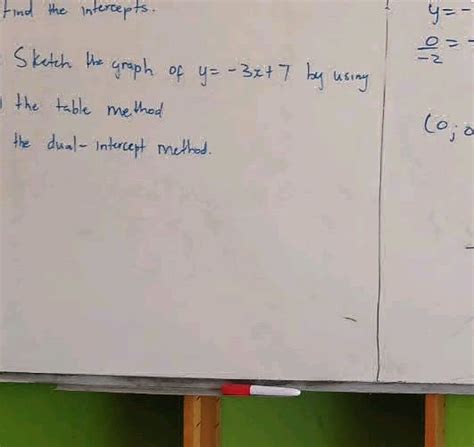 Find the intercepts.
Sketch the graph of y = -3x + 7 by using
the table method
the dual-intercept method.
y = -
0/-2 = -
(0; 0